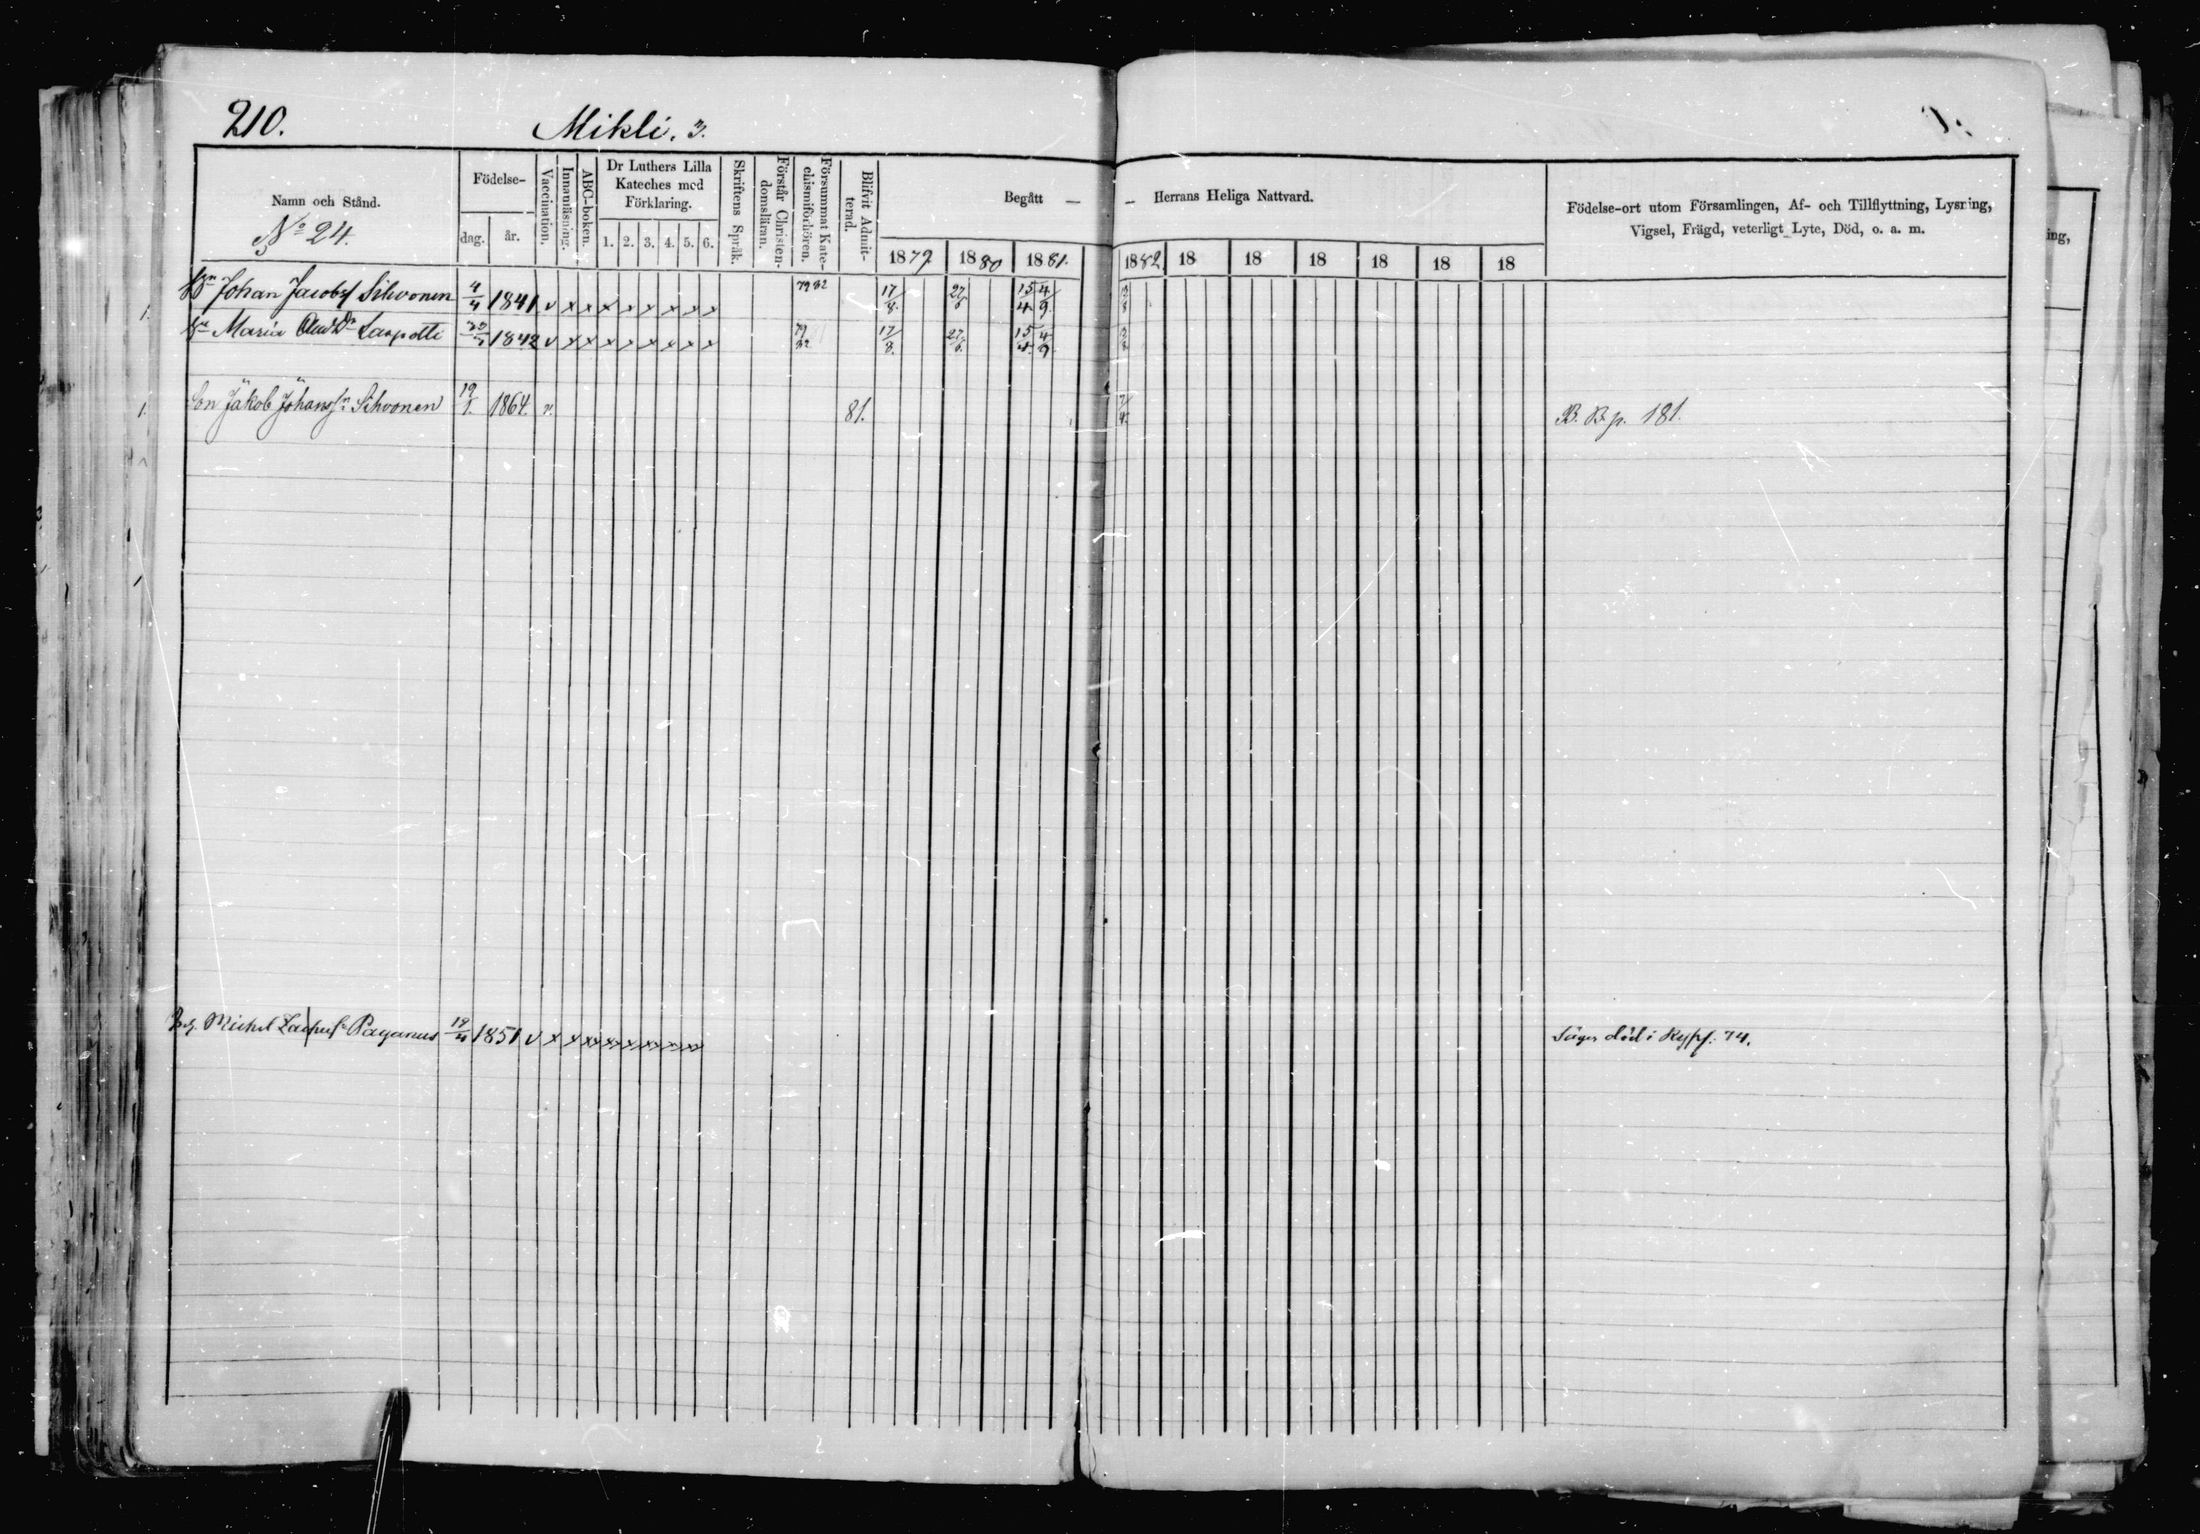 210. Mikli. 3.
Namn och Stånd.
No 24.
Födelse-
dag. år.
Vaccination.
Innanläsning.
ABC-boken.
Dr Luthers Lilla
Kateches med
Förklaring.
1. 2. 3. 4. 5. 6.
Skriftens Språk.
Förstår Christen-
domsläran.
Försummat Kate-
chismiförhören.
Blifvit Admit-
terad.
Begått — — Herrans Heliga Nattvard.
1879. 1880 1881. 1882. 18 18 18 18 18 18
Födelse-ort utom Församlingen, Af- och Tillflyttning, Lysning,
Vigsel, Frägd, veterligt Lyte, Död, o. a. m.
ing,
Johan Jacobss Sihvonen 4/4 1841 v x x x x x x x x 79 82 17/8. 27/6 15/4 4/9
Maria And.Dr 1842 v x x x x x x x x 79 82 17/8. 27/6. 15/4 4/9
Son Jakob Johanss. Sihvonen 19/1. 1864. v. 81. B. B. p. 181.
Michel Paganus 18/4 1851 v x x xx xx x xx xx xx Säges död i 74.